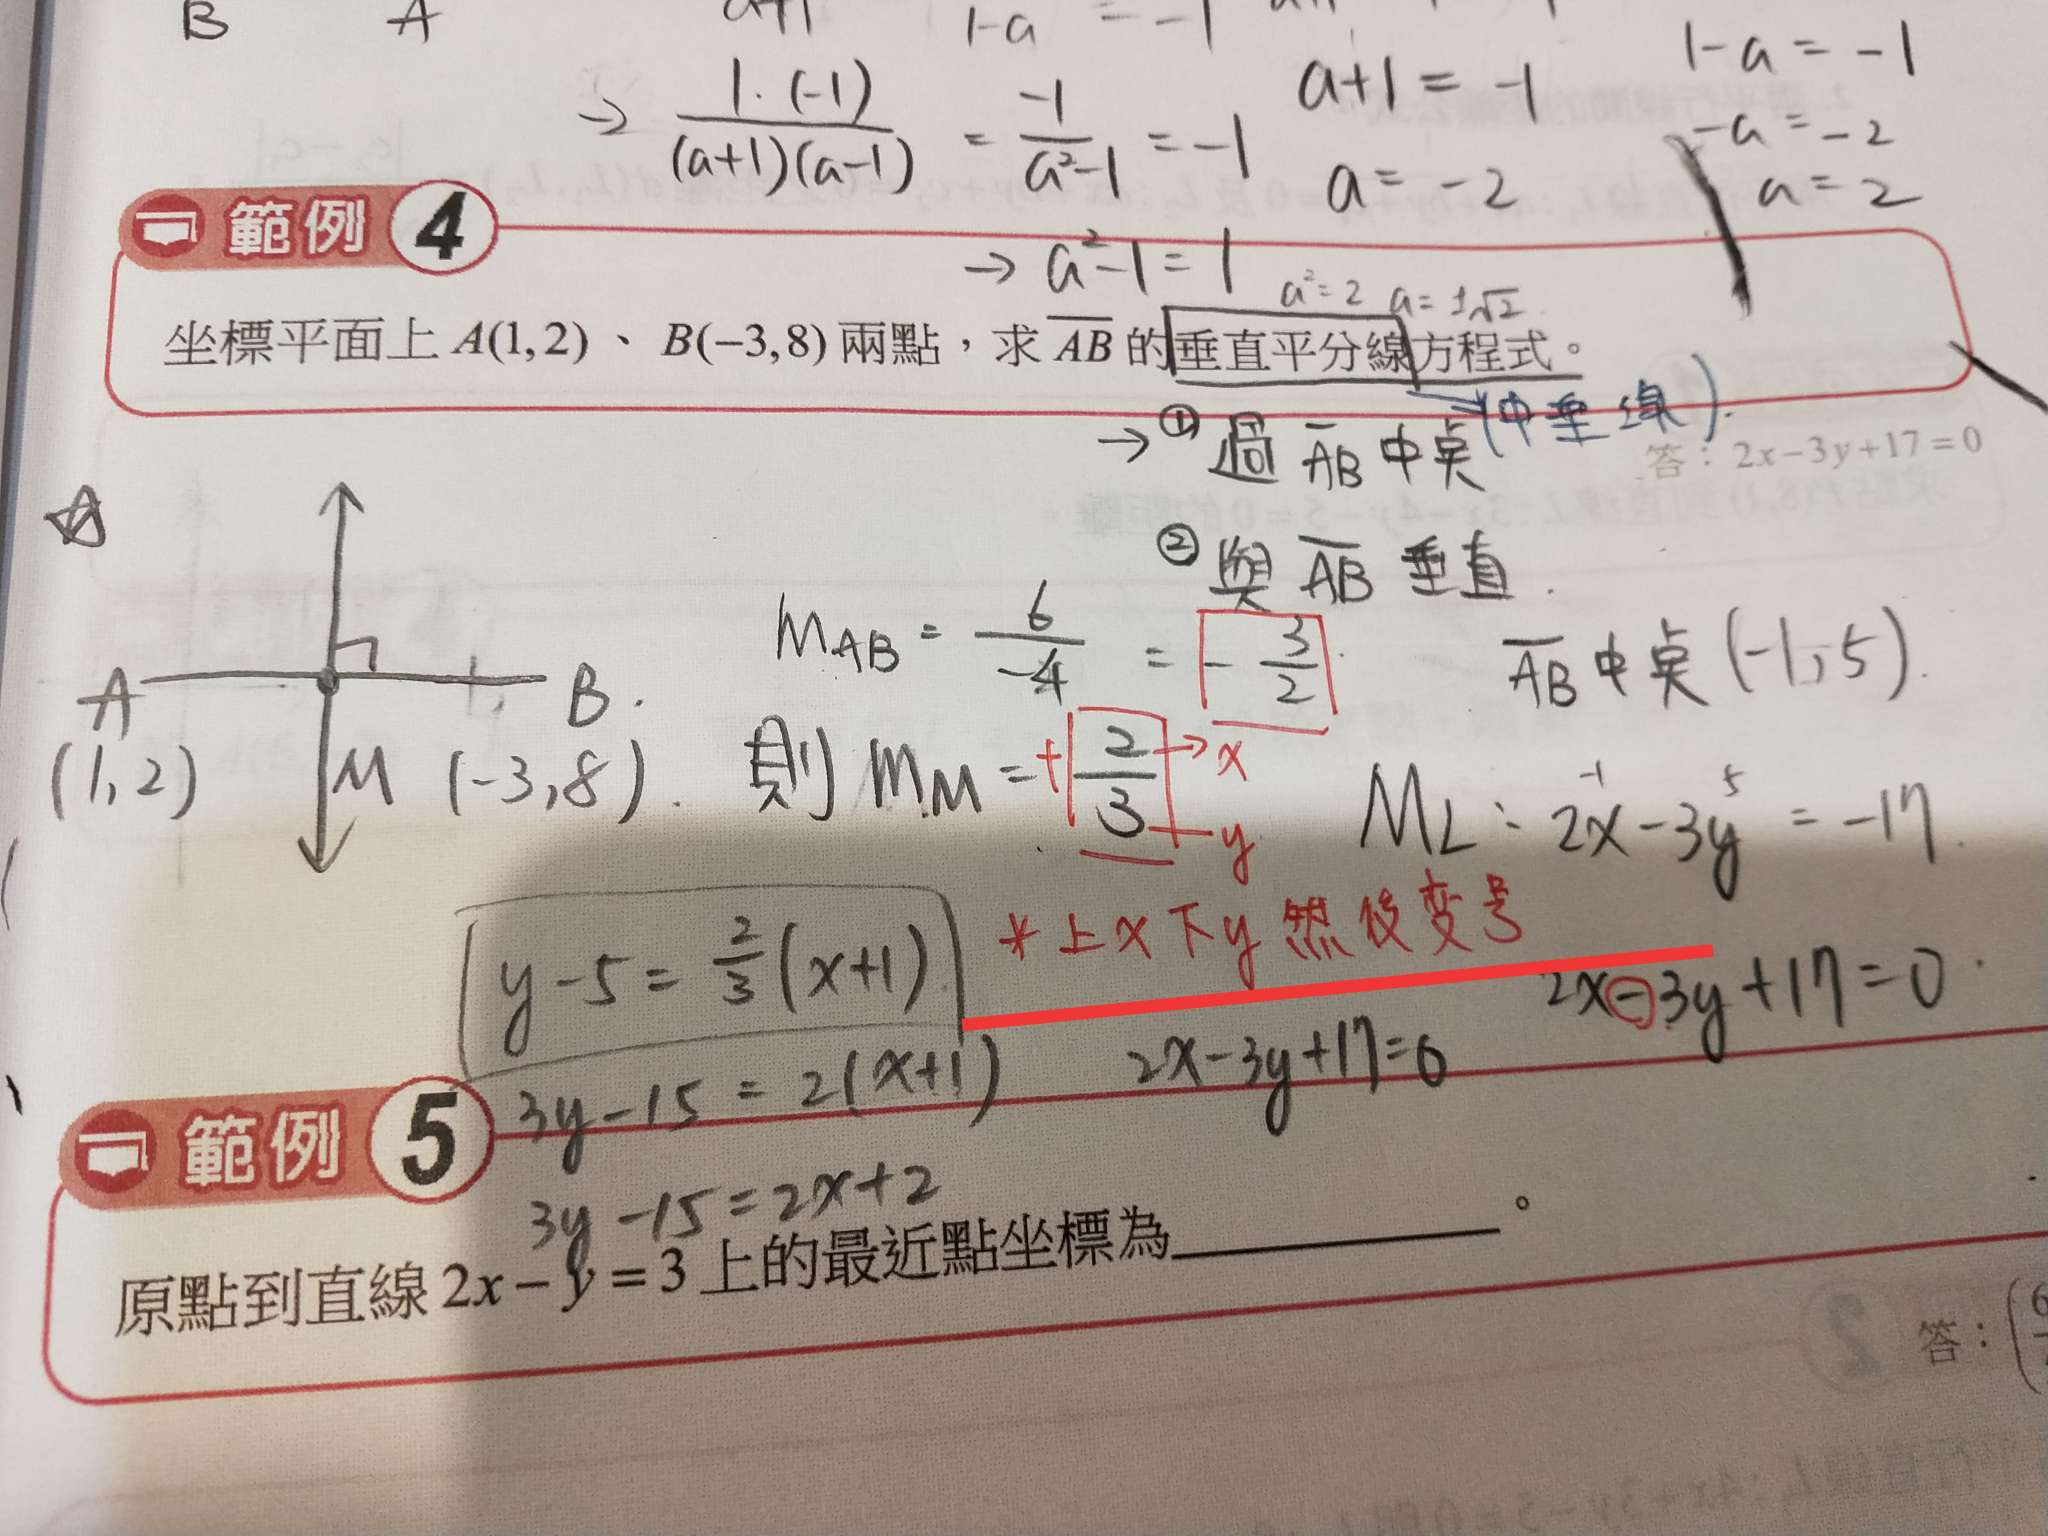 B A a+1 1-a = -1
→ 1·(-1)/(a+1)(a-1) = -1/a²-1 = -1
a+1 = -1
a = -2
1-a = -1
-a = -2
a = 2
→ a²-1 = 1
a²=2 a=±√2
範例 4
坐標平面上 A(1, 2) 、 B(−3, 8) 兩點,求 AB 的垂直平分線方程式。
(中垂線).
答:2x−3y+17=0
→ ① 過 AB 中點
② 與 AB 垂直.
A B.
(1,2) M (-3,8).
mAB = 6/-4 = -3/2
AB 中點 (-1,5).
則 mM = +2/3 → x
y
ML : 2x-3y = -17.
-1 5
*上x下y 然後变号
y-5 = 2/3(x+1)
2x-3y+17=0.
3y-15 = 2(x+1)
2x-3y+17=0
3y-15=2x+2
範例 5
原點到直線 2x − y = 3 上的最近點坐標為 。
答:(6